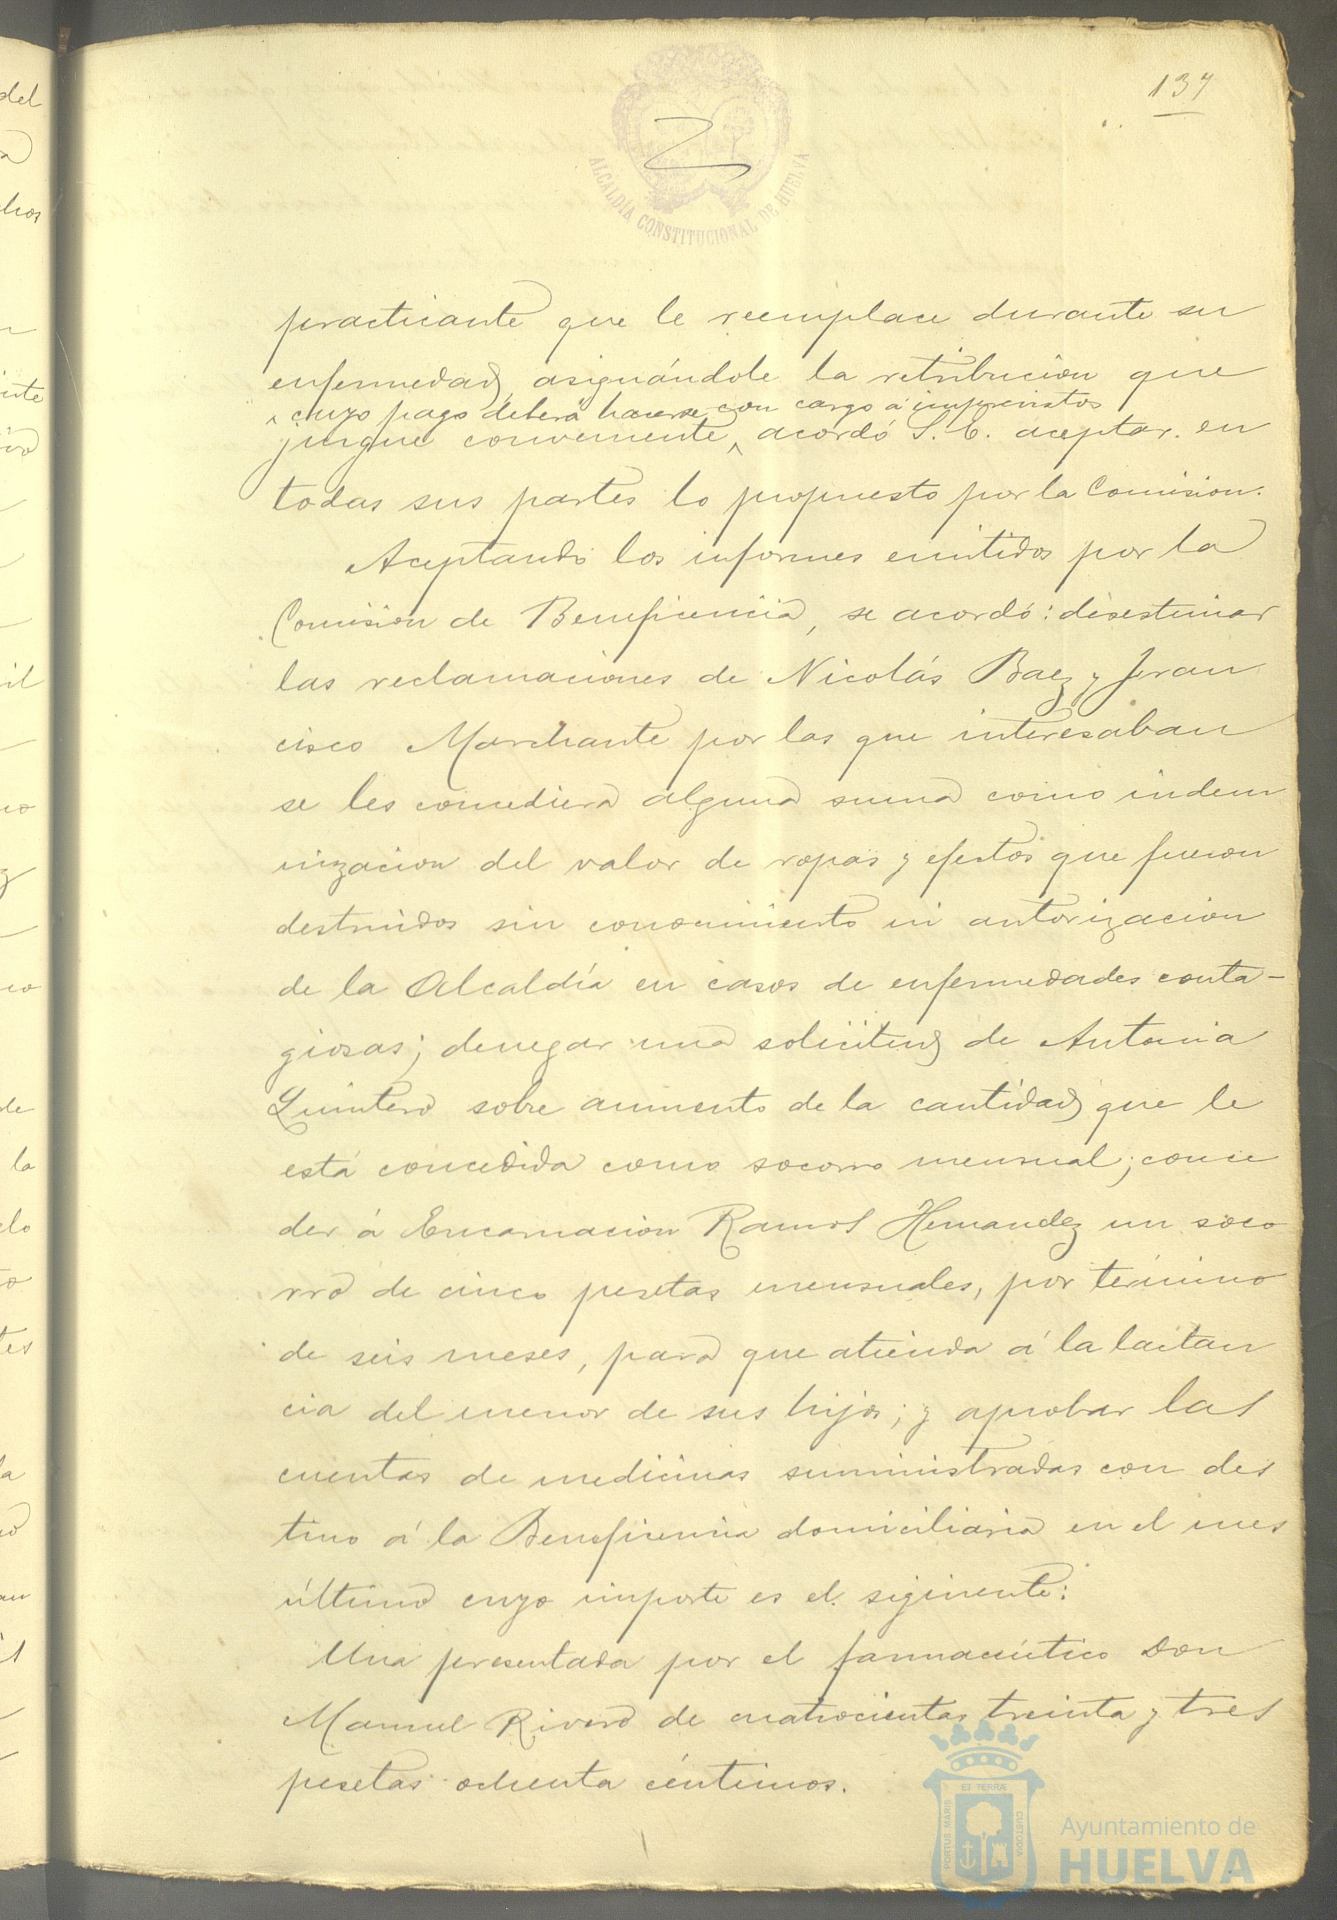 137
ALCALDÍA CONSTITUCIONAL DE HUELVA
practicante que le reemplace durante su
enfermedad, asignándole la retribucion que
cuyo pago deberá hacerse con cargo á imprevistos
juzgue conveniente, acordó S. E. aceptar en
todas sus partes lo propuesto por la Comision.
Aceptando los informes emitidos por la
Comision de Beneficencia, se acordó: desestimar
las reclamaciones de Nicolás Baez y Fran
cisco Marchante por las que interesaban
se les concediera alguna suma como indem
nizacion del valor de ropas y efectos que fueron
destruidos sin conocimiento ni autorizacion
de la Alcaldía en casos de enfermedades conta-
giosas; denegar una solicitud de Antonia
Quintero sobre aumento de la cantidad que le
está concedida como socorro mensual; conce
der á Encarnacion Ramos Hernandez un soco
rro de cinco pesetas mensuales, por término
de seis meses, para que atienda á la lactan
cia del menor de sus hijos; y aprobar las
cuentas de medicinas suministradas con des
tino á la Beneficencia domiciliaria en el mes
último cuyo importe es el siguiente:
Una presentada por el farmacéutico Don
Manuel Rivero de cuatrocientas treinta y tres
pesetas ochenta céntimos.
PORTUS MARIS ET TERRÆ CUSTODIA
Ayuntamiento de
HUELVA